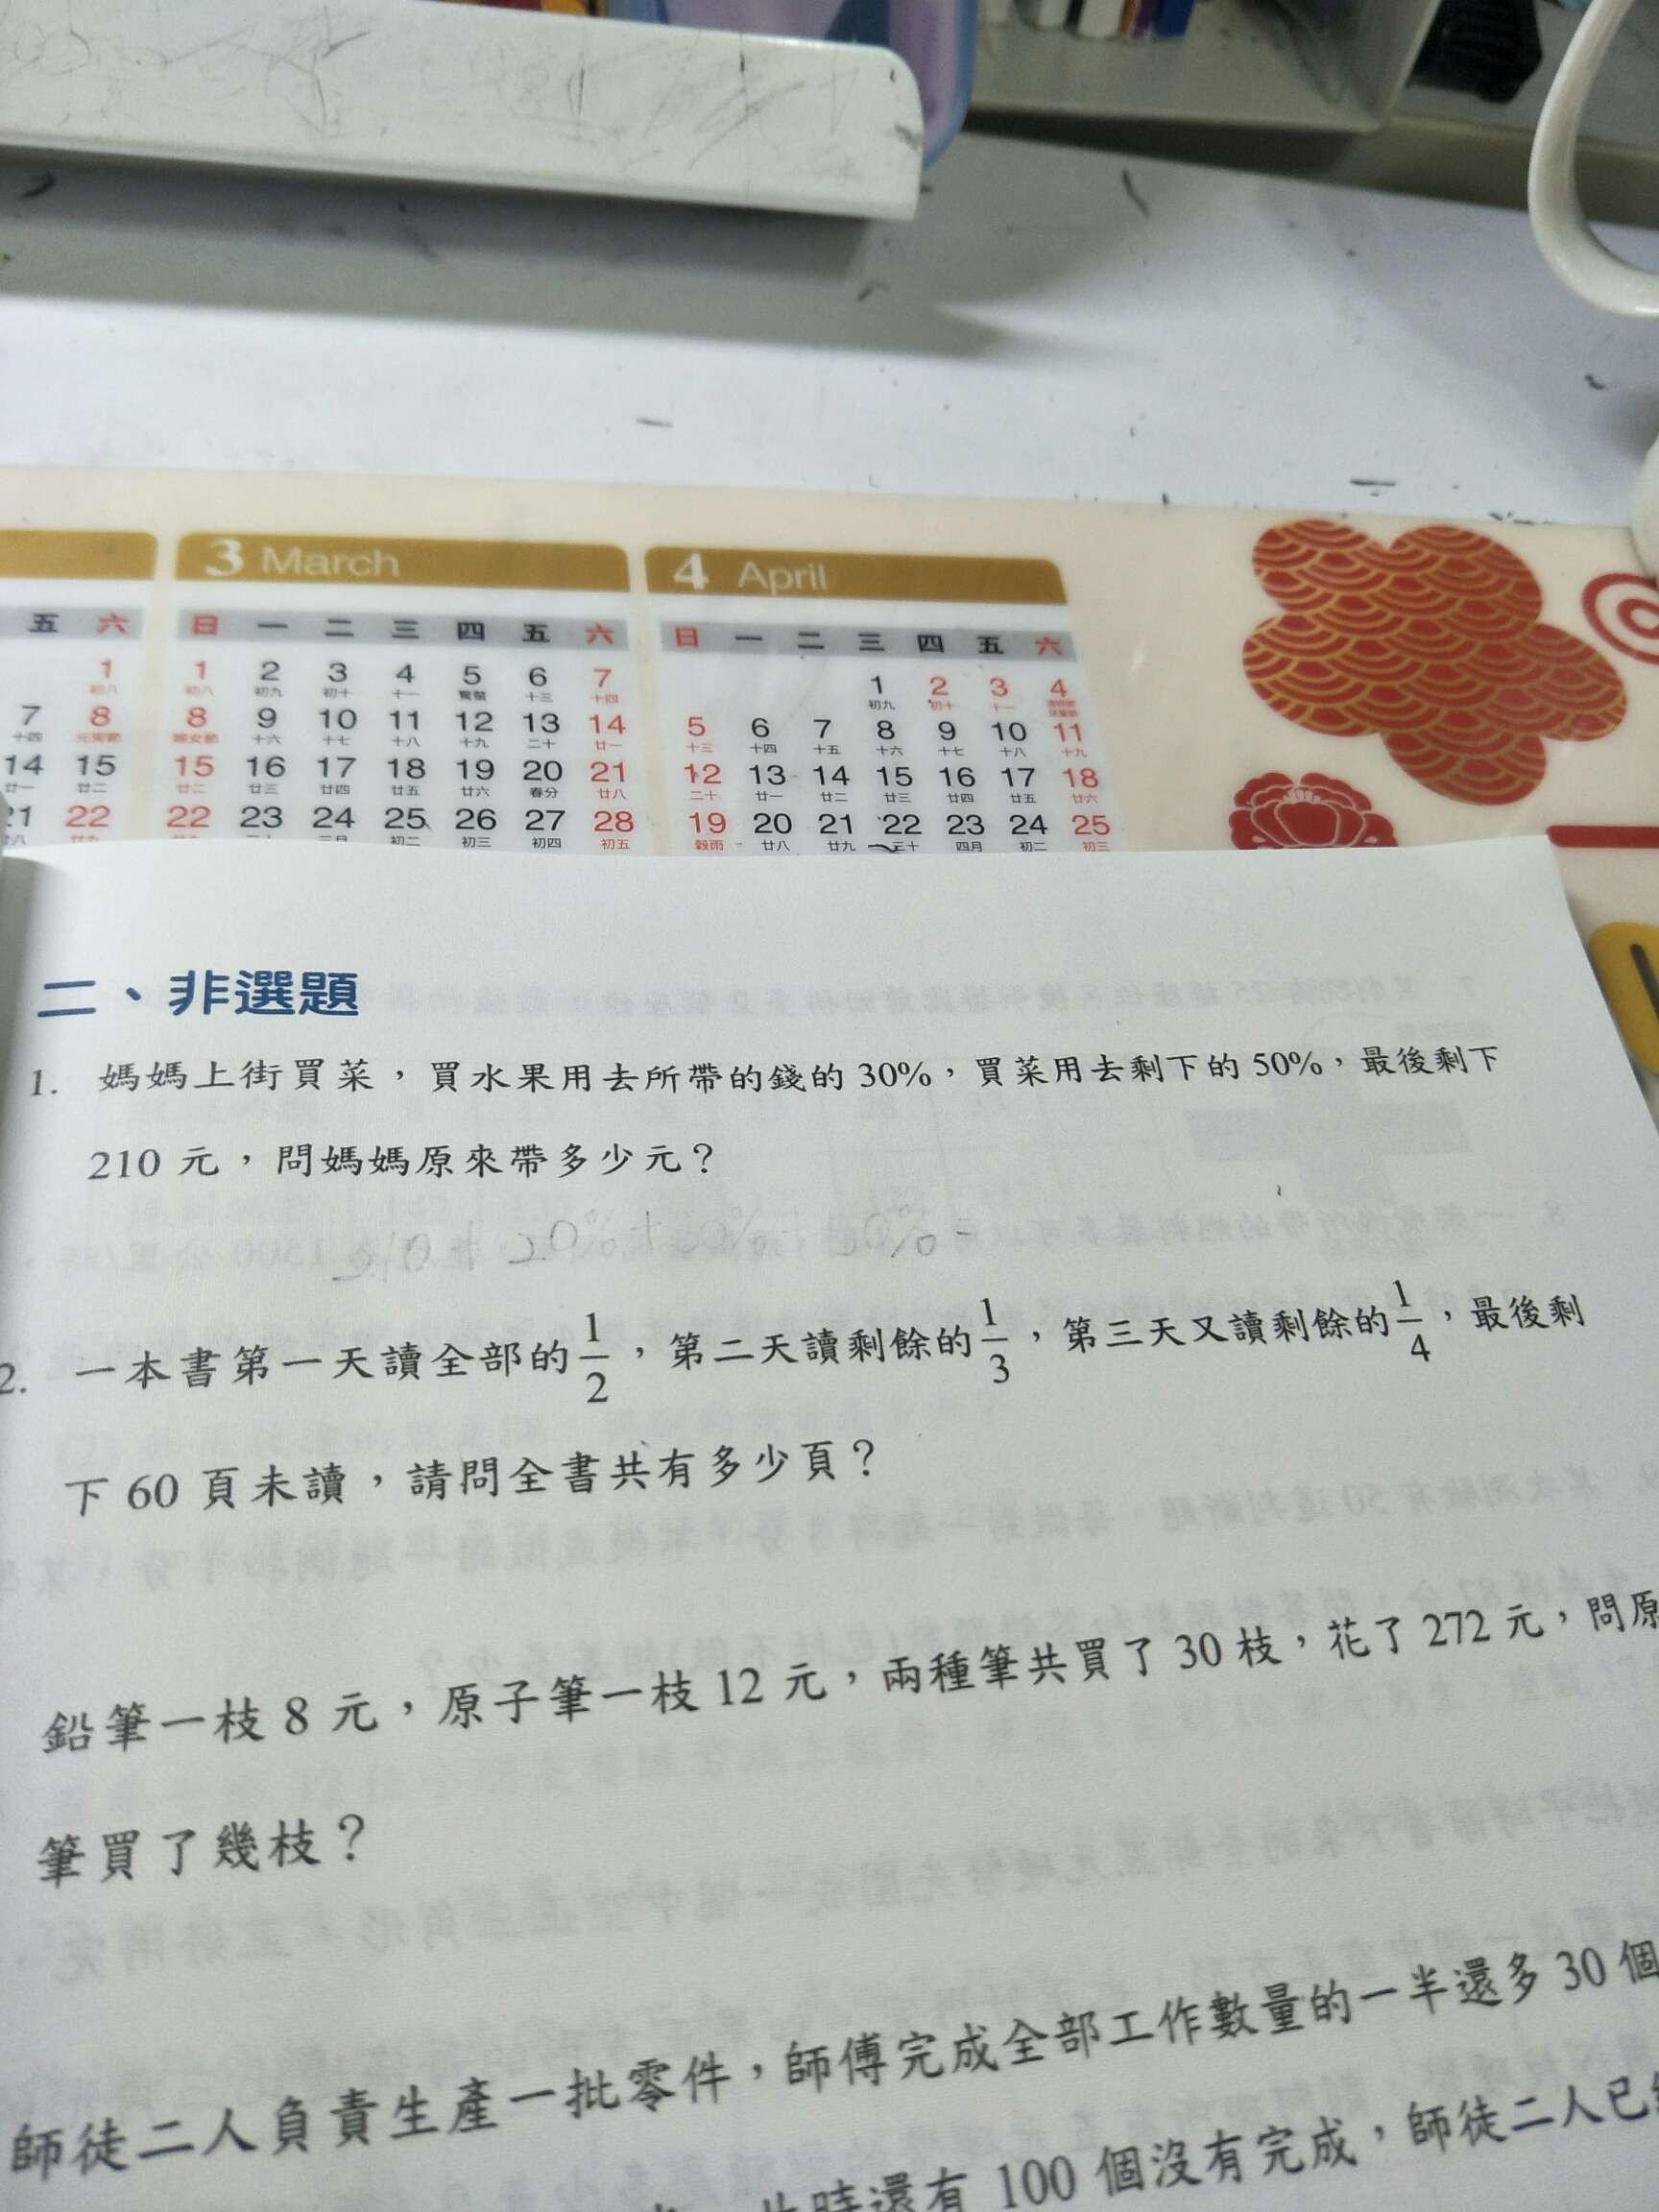 3 March
4 April
五 六
日 一 二 三 四 五 六
日 一 二 三 四 五 六
1
1 2 3 4 5 6 7
初八
初八 初九 初十 十一 驚蟄 十三 十四
1 2 3 4
初九 初十 十一
7 8
8 9 10 11 12 13 14
十四 元宵節
婦女節 十六 十七 十八 十九 二十 廿一
5 6 7 8 9 10 11
十三 十四 十五 十六 十七 十八 十九
14 15
15 16 17 18 19 20 21
廿一 廿二
廿二 廿三 廿四 廿五 廿六 春分 廿八
12 13 14 15 16 17 18
二十 廿一 廿二 廿三 廿四 廿五 廿六
21 22
22 23 24 25 26 27 28
初二 初三 初四 初五
19 20 21 22 23 24 25
穀雨 廿八 廿九 三十 四月 初二 初三
二、非選題
1. 媽媽上街買菜，買水果用去所帶的錢的 30%，買菜用去剩下的 50%，最後剩下
210 元，問媽媽原來帶多少元？
2. 一本書第一天讀全部的 1/2，第二天讀剩餘的 1/3，第三天又讀剩餘的 1/4，最後剩
下 60 頁未讀，請問全書共有多少頁？
鉛筆一枝 8 元，原子筆一枝 12 元，兩種筆共買了 30 枝，花了 272 元，問原
筆買了幾枝？
師徒二人負責生產一批零件，師傅完成全部工作數量的一半還多 30 個
此時還有 100 個沒有完成，師徒二人已